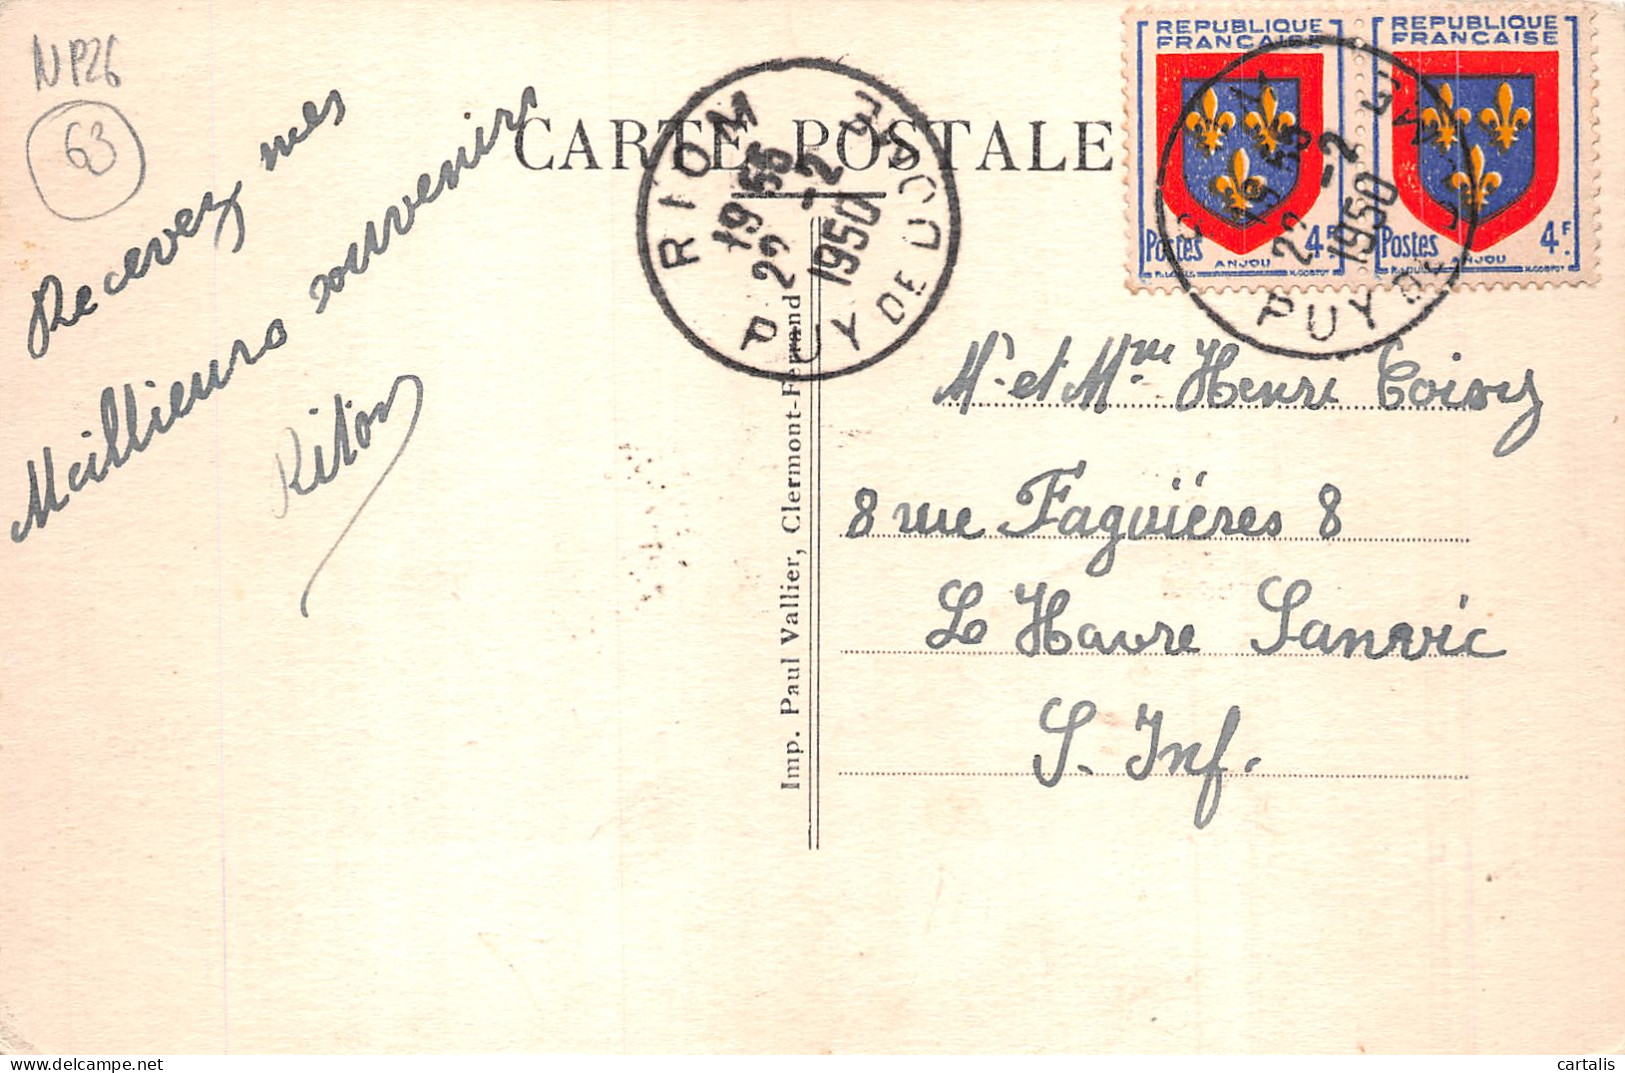 NP26
63
CARTE POSTALE
Recevez mes
Meillieurs souvenirs
Riton
RIOM
PUY DE DOME
19 55
22 -2
1950
REPUBLIQUE
FRANÇAISE
Postes 4F
ANJOU
REPUBLIQUE
FRANÇAISE
Postes 4F
ANJOU
22 -2
1950
PUY DE
Imp. Paul Vallier, Clermont-Ferrand
Mr et Mme Henri Coisy
8 rue Faguières 8
Le Havre Sanvic
S. Inf.
cartalis